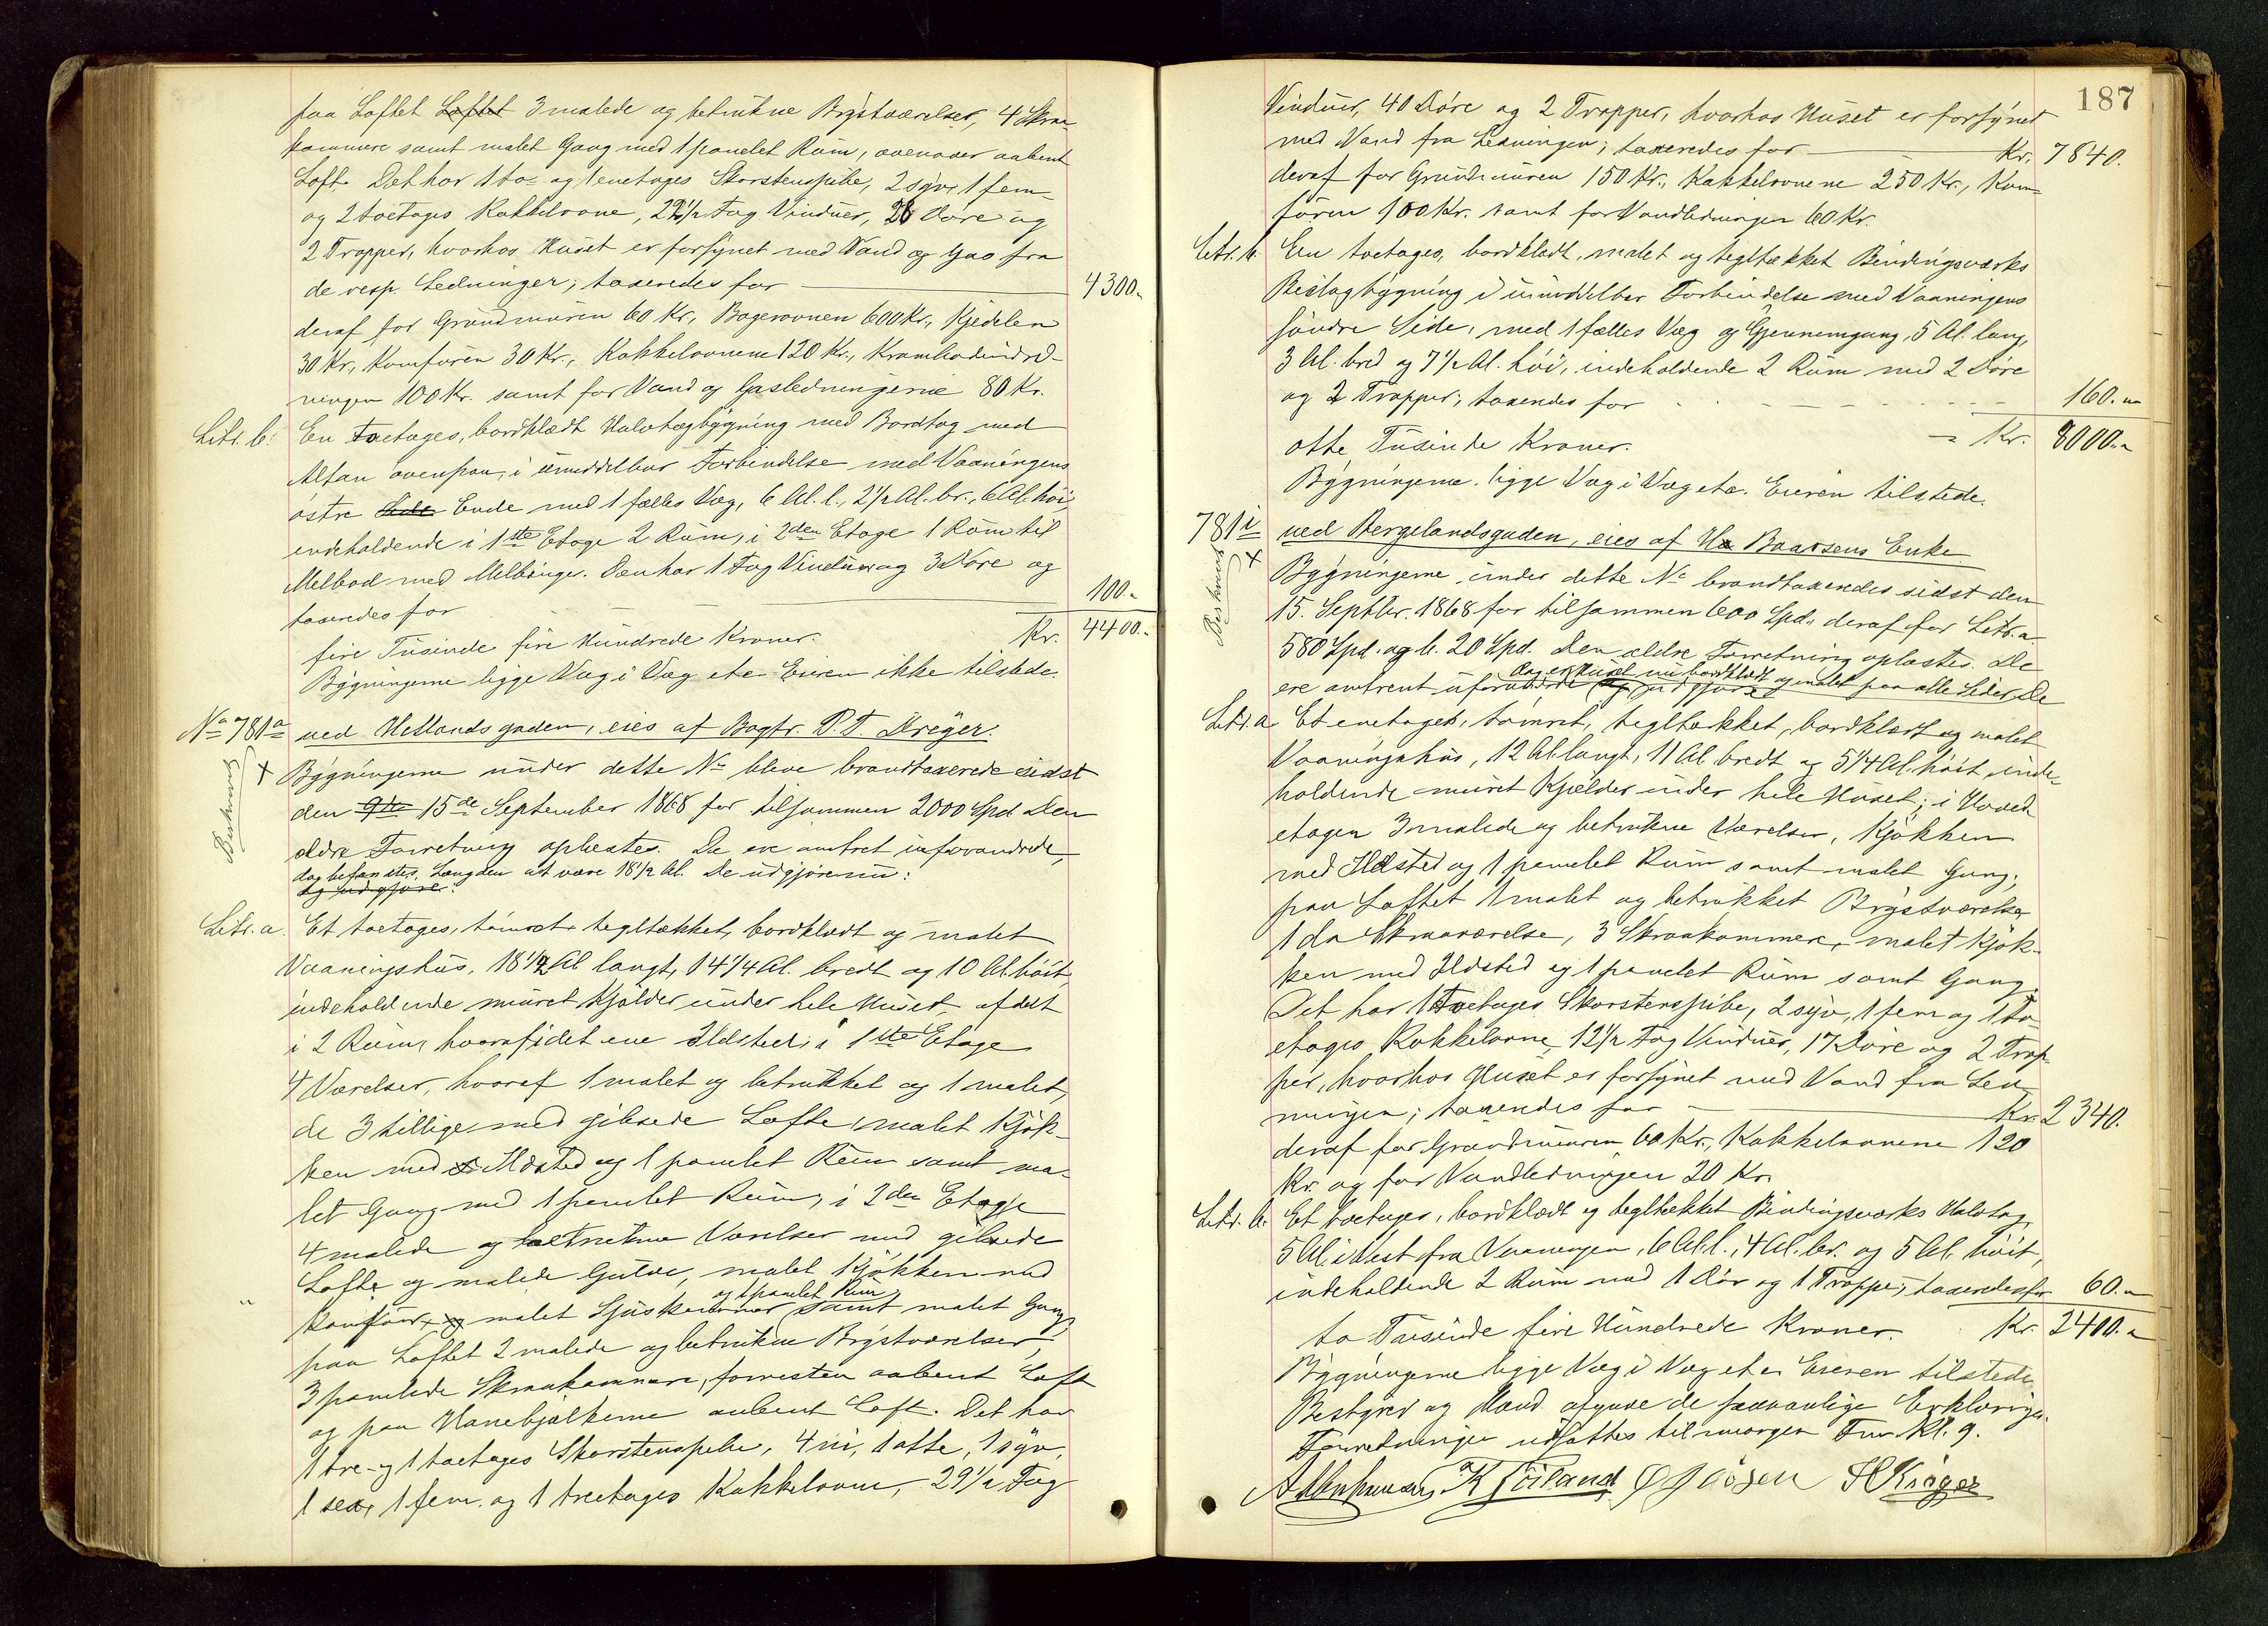 paa Loftet Loftet 3 malede og betrukne Brystværelser, 4 Skraa-
kammere samt malet Gang med 1 panelet Rum, ovenover aabent
Loft. Det har 1 to- og 1 enetages Skorstenspibe, 2 syv, 1 fem
og 2 toetages Kakkelovne, 22 1/2 Fag Vinduer, 26 Døre og
2 Trapper, hvorhos Huset er forsynet med Vand og Gas fra
de resp. Ledninger; taxeredes for 4300.-
deraf for Grundmuren 60 Kr., Bagerovnen 600 Kr., Kjedelen
30 Kr., Komfuren 30 Kr., Kakkelovnene 120 Kr., Krambodindred-
ningen 100 Kr. samt for Vand og Gasledningerne 80 Kr.
Litr. b. En toetages, bordklædt Halvtagbygning med Bordtag med
Altan ovenpaa, i umiddelbar Forbindelse med Vaaningens
østre Side Ende med 1 fælles Væg, 6 Al. l., 2 1/2 Al. br., 6 Al. høi,
indeholdende i 1ste Etage 2 Rum, i 2den Etage 1 Rum til
Melbod med Melbinge. Den har 1 Fag Vinduer og 3 Døre og
taxeredes for 100.-
fire Tusinde fire Hundrede Kroner. Kr. 4400.-
Bygningerne ligge Væg i Væg etc. Eieren ikke tilstede.
No 781a ved Hetlandsgaden, eies af Bagtr. P. T. Dreyer.
Beskrevet
+ Bygningerne under dette No bleve brandtaxerede sidst
den 9de 15de September 1868 for tilsammen 2000 Spd. Den
ældre Forretning oplæstes. De ere omtret uforandrede,
dog befandtes Længden at være 18 1/2 Al. De udgjøre nu:
og udgjøre:
Litr. a. Et toetages, tømret, tegltækket, bordklædt og malet
Vaaningshus, 18 1/2 Al langt, 14 1/4 Al. bredt og 10 Al. høit,
indeholdende muret Kjælder under hele Huset, afdelt
i 2 Rum, hvoraf i det ene Ildsted; i 1ste Etage
4 Værelser, hvoraf 1 malet og betrukket og 1 malet,
de 3 tillige med gibsede Lofte, malet Kjøk-
ken med Ildsted og 1 panelet Rum samt ma-
let Gang med 1 panelet Rum, i 2den Etage
4 malede og betrukne Værelser med gibsede
Lofte og malede Gulve, malet Kjøkken med
og 1 panelet Rum
Komfur, og malet Spiskammer samt malet Gang,
paa Loftet 2 malede og betrukne Brystværelser,
3 panelede Skraakammere, forresten aabent Loft
og paa Hanebjælkerne aabent Loft. Det har
1 tre- og 1 toetages Skorstenspibe, 4 ni, 1 otte, 1 syv,
1 sex, 1 fem og 1 treetages Kakkelovne, 29 1/2 Fag
187
Vinduer, 40 Døre og 2 Trapper, hvorhos Huset er forsynet
med Vand fra Ledningen; taxeredes for Kr. 7840.
deraf for Grundmuren 150 Kr., Kakkelovnene 250 Kr., Kom-
furen 100 Kr. samt for Vandledningen 60 Kr.
Litr. b. En toetages, bordklædt, malet og tegltækket Bindingsværks
Beslagbygning i umiddelbar Forbindelse med Vaaningens
søndre Side, med 1 fælles Væg og Gjennemgang, 5 Al. lang,
3 Al. bred og 7 1/2 Al. høi, indeholdende 2 Rum med 2 Døre
og 2 Trapper; taxeredes for 160.-
otte Tusinde Kroner. = Kr. 8000.-
Bygningerne ligge Væg i Væg etc. Eieren tilstede.
781i ved Bergelandsgaden, eies af Baarsens Enke
Beskrevet
+ Bygningerne under dette No brandtaxeredes sidst den
15. Septbr. 1868 for tilsammen 600 Spd., deraf for Litr. a
580 Spd. og b. 20 Spd. Den ældre Forretning oplæstes. De
dog er Huset nu bordklædt og malet paa alle Sider. De
ere omtrent uforandrede og udgjøre
Litr. a Et enetages, tømret, tegltækket, bordklædt og malet
Vaaningshus, 12 Al. langt, 11 Al. bredt og 5 1/4 Al. høit, inde-
holdende muret Kjælder under hele Huset; i Hoved-
etagen 3 malede og betrukne Værelser, Kjøkken
med Ildsted og 1 panelet Rum samt malet Gang;
paa Loftet 1 malet og betrukket Brystværelse,
1 do Skraaværelse, 3 Skraakammere, malet Kjøk-
ken med Ildsted og 1 panelet Rum samt Gang.
Det har 1 toetages Skorstenspibe, 2 syv, 1 fem og 1 to-
etages Kakkelovne, 12 1/2 Fag Vinduer, 17 Døre og 2 Trap-
per, hvorhos Huset er forsynet med Vand fra Led-
ningen; taxeredes for Kr. 2340.
deraf for Grundmuren 60 Kr., Kakkelovnene 120
Kr. og for Vandledningen 20 Kr.
Litr. b. Et toetages, bordklædt og tegltækket Bindingsværks Halvtag,
5 Al. i Vest fra Vaaningen, 6 Al. l., 4 Al. br. og 5 Al. høit,
indeholdende 2 Rum med 1 Dør og 1 Trappe; taxeredes for 60.-
to Tusinde fire Hundrede Kroner. Kr. 2400.-
Bygningerne ligge Væg i Væg etc. Eieren tilstede.
Bestyrer og Mænd afgave de sædvanlige Erklæringer.
Forretningen udsattes til imorgen Fm. Kl. 9.
K Joiland H Krøger